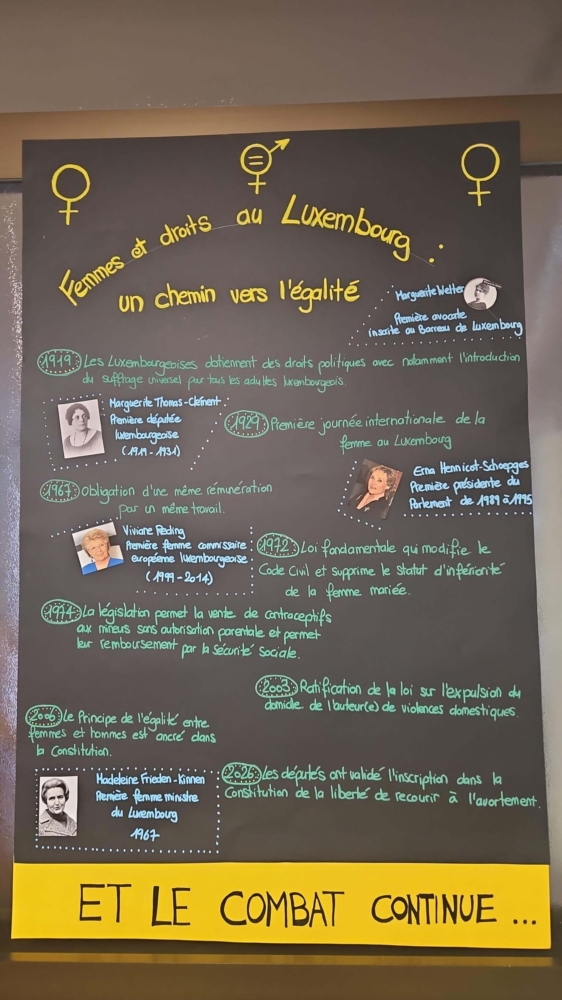 Femmes et droits au Luxembourg :
un chemin vers l'égalité
Marguerite Welter
Première avocate
inscrite au Barreau de Luxembourg
1919 Les Luxembourgeoises obtiennent des droits politiques avec notamment l'introduction
du suffrage universel pour tous les adultes luxembourgeois.
Marguerite Thomas-Clement
Première députée
luxembourgeoise
(1919 - 1931)
1929 Première journée internationale de la
femme au Luxembourg
Erna Hennicot-Schoepges
Première présidente du
Parlement de 1989 à 1995
1967 Obligation d'une même rémunération
pour un même travail.
Viviane Reding
Première femme commissaire
européenne luxembourgeoise
(1999 - 2014)
1972 Loi fondamentale qui modifie le
Code Civil et supprime le statut d'infériorité
de la femme mariée.
La législation permet la vente de contraceptifs
aux mineurs sans autorisation parentale et permet
leur remboursement par la Sécurité Sociale.
2003 Ratification de la loi sur l'expulsion du
domicile de l'auteur(e) de violences domestiques.
2006 Le Principe de l'égalité entre
femmes et hommes est ancré dans
la Constitution.
Madeleine Frieden-Kinnen
Première femme ministre
du Luxembourg
1967
2026 Les députés ont validé l'inscription dans la
Constitution de la liberté de recourir à l'avortement.
ET LE COMBAT CONTINUE ...